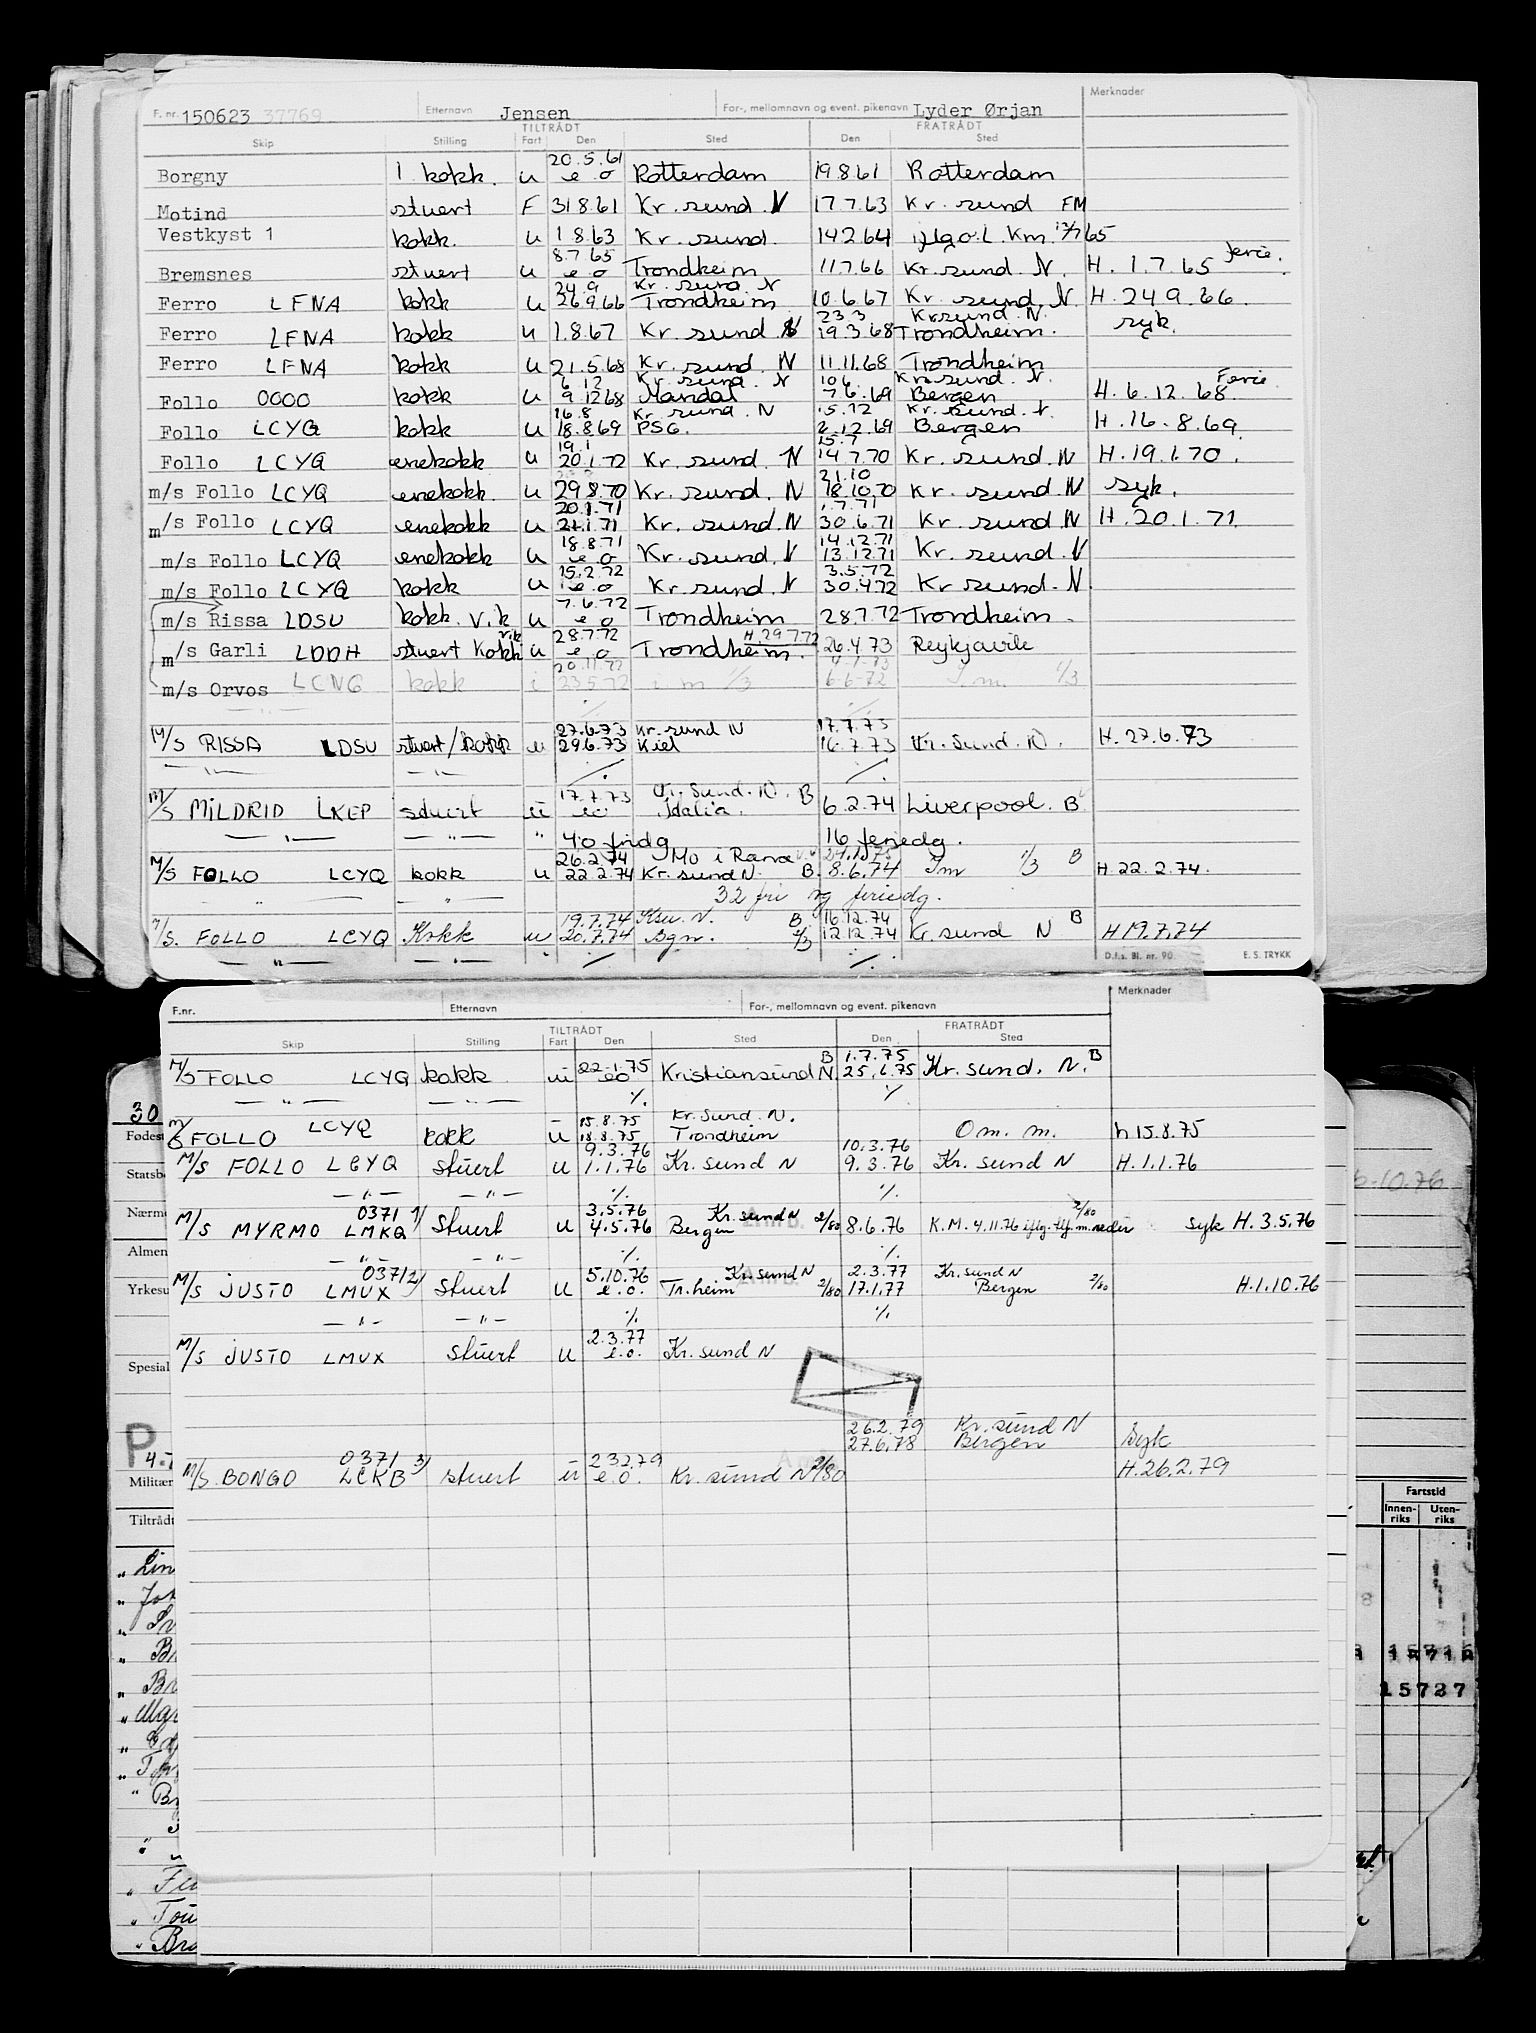 Merknader
F. nr. 150623 37769 Etternavn Jensen For-, mellomnavn og event. pikenavn Lyder Ørjan
TILTRÅDT FRATRÅDT
Skip Stilling Fart Den Sted Den Sted
20.5.61
Borgny 1 kokk. u e o Rotterdam 19861 Rotterdam
Motind stuert F 31861 Kr. sund. N 17.7.63 Kr. sund FM
Vestkyst 1 kokk. u 1.8.63 Kr. sund. 14264 Km. 12/7 65
8.7 65 ferie.
Bremsnes stuert u e o Trondheim 11766 Kr. sund. N. H. 1.7.65
24.9 Kr. sund. N
Ferro LFNA kokk u 26966 Trondheim 10.6.67 Kr. sund. N H. 24.9.66.
23.3 Kr.sund. N.
Ferro LFNA kokk u 1.8.67 Kr. sund N 19.3.68 Trondheim. syk.
Ferro LFNA kokk u 21.5.68 Kr. sund. N 11.11.68 Trondheim
6.12 Kr. sund. N 10.6. Kr. sund. N. Ferie
Follo OOOO kokk u 9.1268 Mandal 7.6.69 Bergen H. 6.12.68.
16.8 Kr. sund. N 5.12 Kr. sund. N.
Follo LCYQ kokk u 18.869 PSG. 2.12.69 Bergen H. 16.8.69.
19.1 15.7
Follo LCYQ enekokk u 20.1.72 Kr. sund. N 14 7.70 Kr. sund. N H. 19.1.70.
21.10
m/s Follo LCYQ enekokk. u 298.70 Kr. sund. N 18.10.70 Kr. sund. N syk.
20.1.71 1.7.71
m/s Follo LCYQ enekokk u 21.1.71 Kr. sund. N 30.6.71 Kr. sund. N H. 20.1.71.
18.8.71 14.12.71
m/s Follo LCYQ enekokk u e o Kr. sund. N 13.12.71 Kr. sund. N
15.2.72 3.5.72
m/s Follo LCYQ kokk u e o Kr. sund. N 30.4.72 Kr. sund. N
7.6.72
m/s Rissa LDSU kokk. v.k u e o Trondheim 28.7.72 Trondheim.
28.7.72 H. 29.7.72
m/s Garli LDDH stuert kokk vik u e o Trondheim. 26.4.73 Reykjavik
20.11.72
m/s Orvos LCNG kokk i 23.5.72 i m 1/3 6.6.72 I.m. 1/3
27.6.73 Kr. sund N 17.7.73
M/S RISSA LDSU stuert/kokk u 29.6.73 Kiel 16.7.73 Kr. Sund. N. H. 27.6.73
— " — — " — ·/. ·/.
17.7.73 Kr. Sund. N. B
M/S MILDRID LKEP stuert u eo Italia. 6.2.74 Liverpool. B
— " — — " — " 40 fridg 16 feriedg.
26.2.74 Mo i Rana
M/S FOLLO LCYQ kokk u 22.2.74 Kr. sund N. B. 8.6.74 Im 1/3 B H. 22.2.74.
" " — " — 32 fri og feriedg.
19.7.74 Ksu. N. B 16.12.74 B
M/S. FOLLO LCYQ Kokk u 20.7.74 Bgn. 2/3 12.12.74 Kr. sund N H 19.7.74
— " — — " — ·/. ·/. D.f.s. Bl. nr. 90. E. S. TRYKK
F.nr. Etternavn For-, mellomnavn og event. pikenavn Merknader
TILTRÅDT FRATRÅDT
Skip Stilling Fart Den Sted Den Sted
22.1.75 B 1.7.75 B
M/S FOLLO LCYQ kokk u eo Kristiansund N. 25.6.75 Kr. sund. N.
— " — — " — ·/. ·/.
15.8.75 Kr. Sund. N.
M/S FOLLO LCYQ kokk u 18.8.75 Trondheim Om. m. h 15.8.75
9.3.76 10.3.76
M/S FOLLO LCYQ stuert u 1.1.76 Kr. sund N 9.3.76 Kr. sund N H. 1.1.76
— " — — " — ·/. ·/.
0371 1/ 3.5.76 Kr. sund N 2/80
M/S MYRMO LMKQ Stuert u 4.5.76 Bergen 2/80 8.6.76 K.M. 4.11.76 iflg. tlf. m. reder syk H. 3.5.76
— " — — " — ·/. ·/.
0371 2/ 5.10.76 Kr. sund N 2.3.77 Kr. sund N
M/S JUSTO LMUX Stuert u e.o. Tr.heim 2/80 17.1.77 Bergen 2/80 H. 1.10.76
— " — — " — ·/. ·/.
2.3.77
M/S JUSTO LMUX Stuert u e.o. Kr. sund N
26.2.79 Kr. sund N
27.6.78 Bergen Syk
0371 3/ 23279
M/S. BONGO LCKB stuert u e.o. Kr. sund N 2/80 H. 26.2.79
30
Fødest
Statsb
Nærm
Almen
Yrkesu
Spesial
P
4.
Militær
Tiltrådt
6.10.76
Fartstid
Innen-riks Uten-riks
15715
15727
Lin
Br
Br
Fe
Tou
Bra